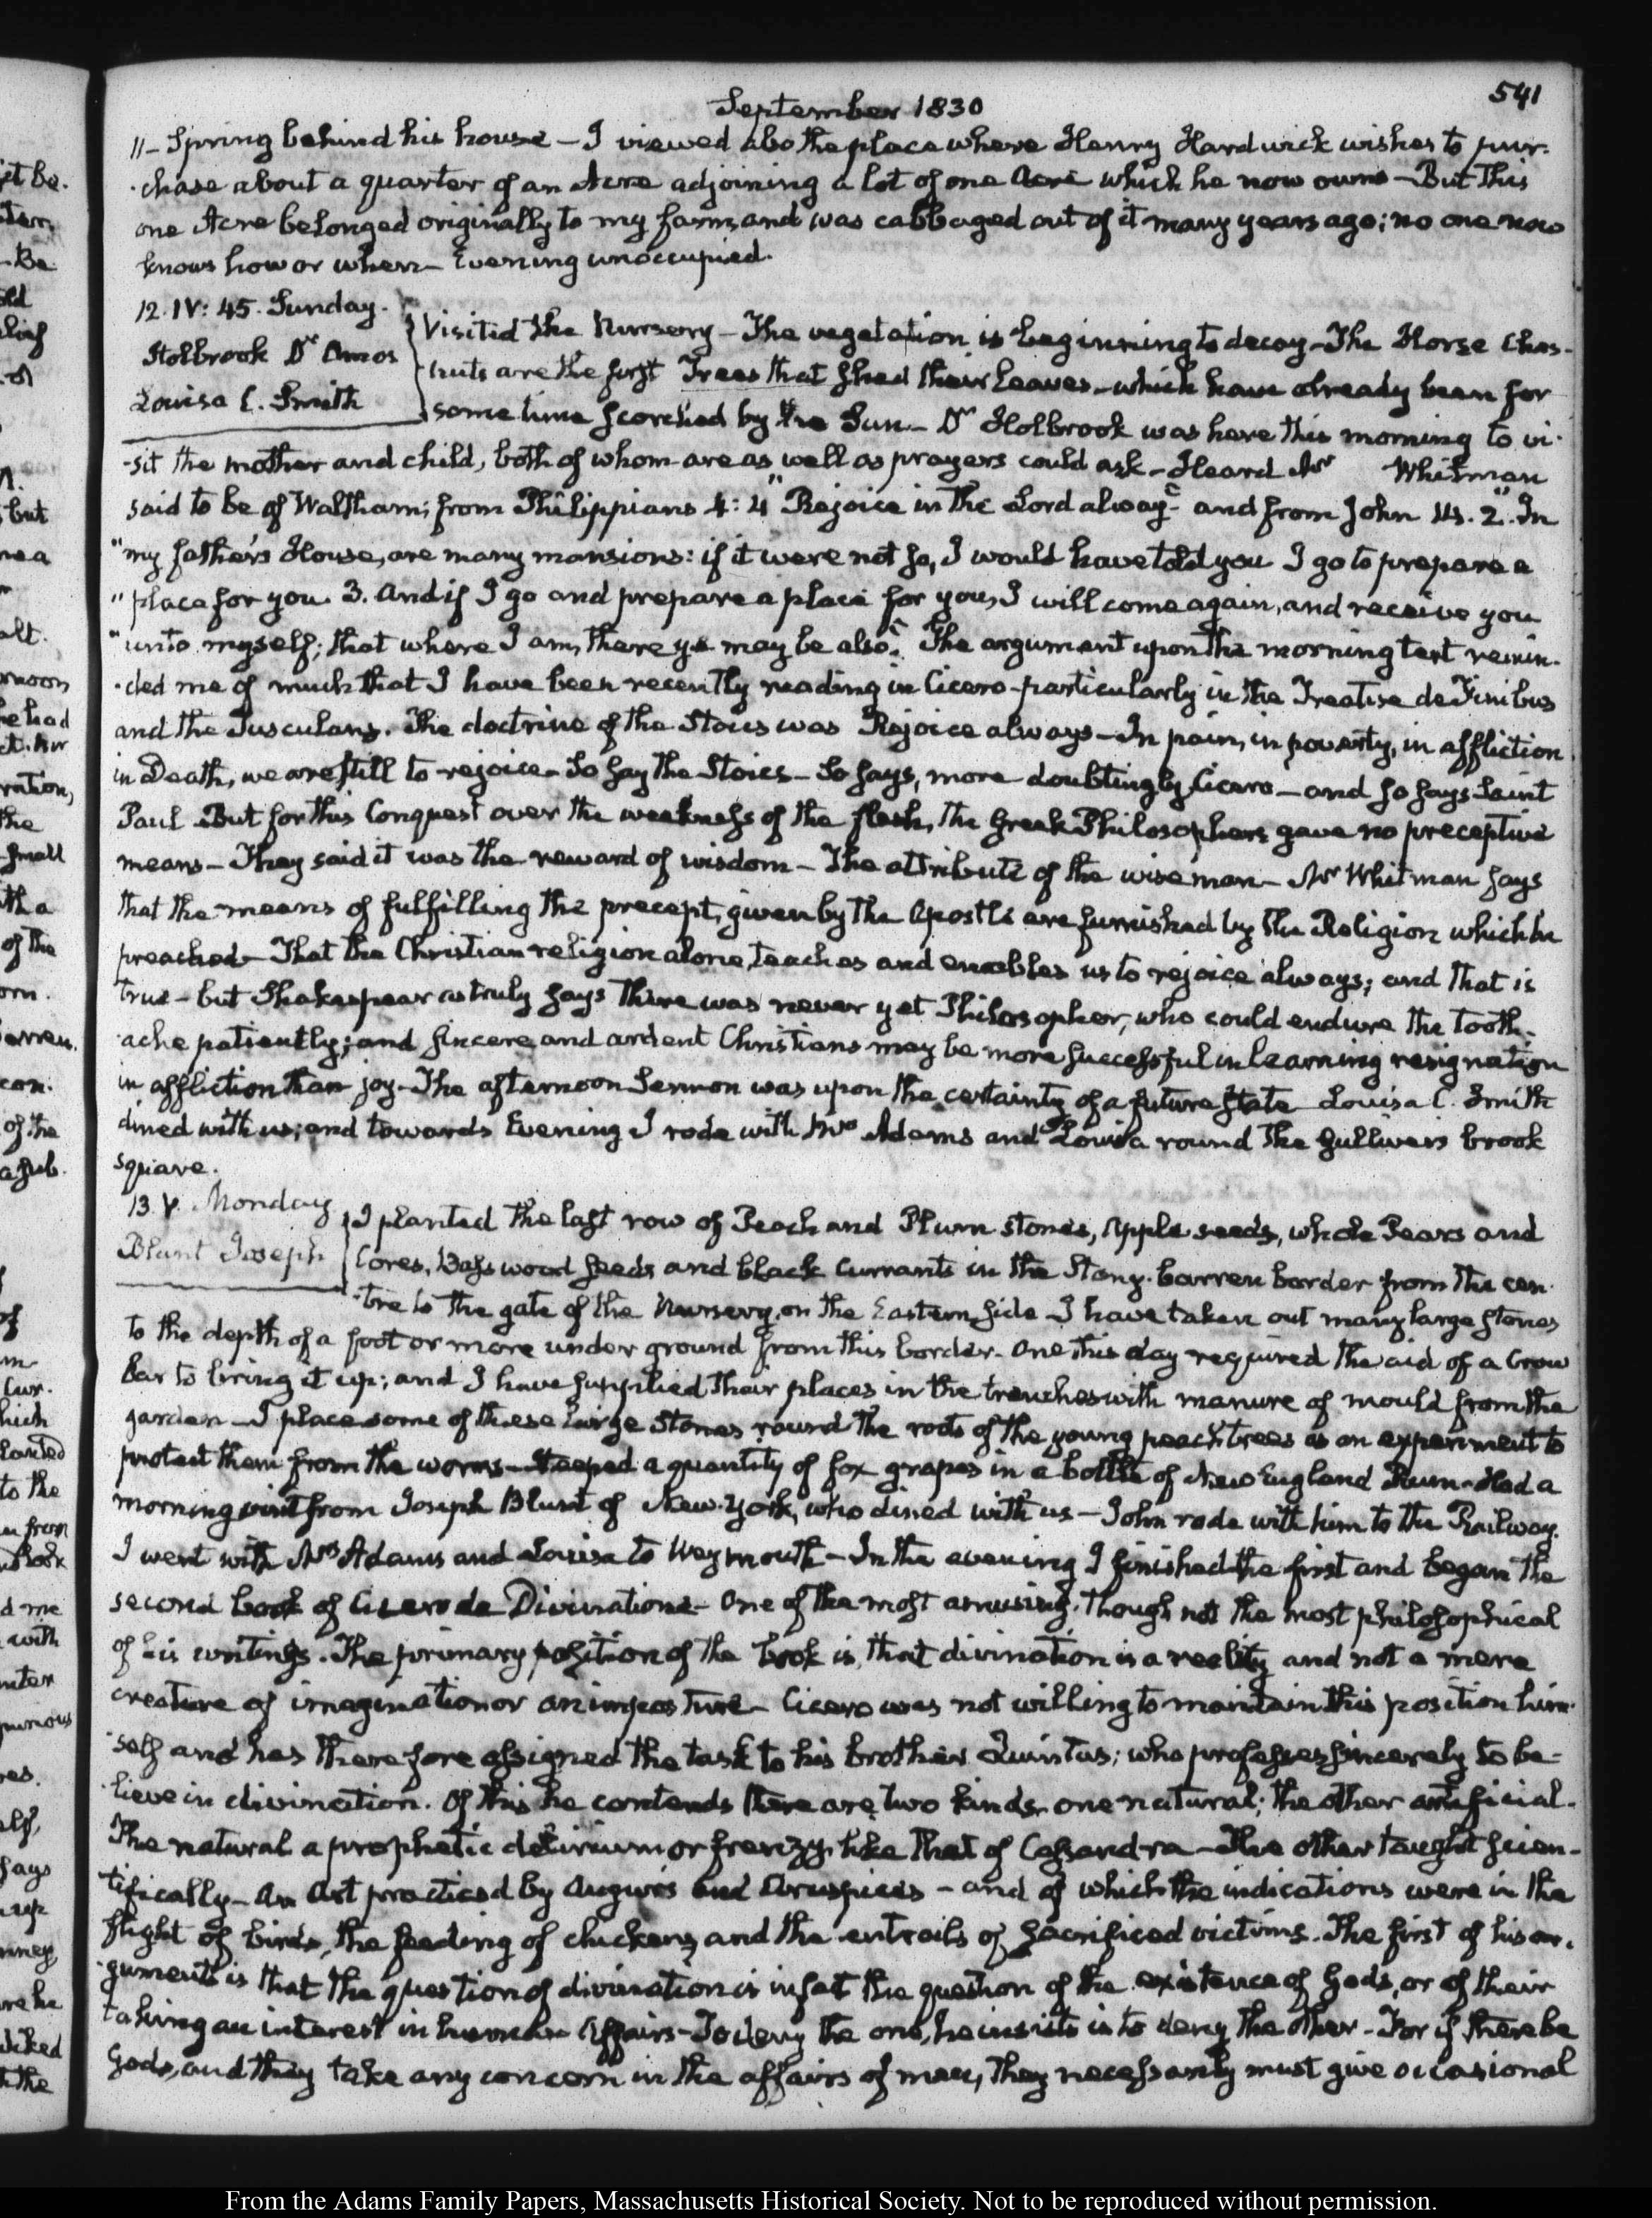 541
September 1830
11 — Spring behind his house — I viewed also the place where Henry Hardwick wishes to pur-
-chase about a quarter of an Acre adjoining a lot of one Acre which he now owns — But this
one Acre belonged originally to my farm, and was cabbaged out of it many years ago; no one now
knows how or when — Evening unoccupied.
12. IV: 45. Sunday.
Holbrook Dr Amos
Louisa C. Smith
Visited the Nursery — The vegetation is beginning to decay — The Horse Ches-
-nuts are the first Trees that shed their leaves — which have already been for
some time scorched by the Sun — Dr Holbrook was here this morning to vi-
-sit the mother and child, both of whom are as well as prayers could ask — Heard Mr Whitman
said to be of Waltham; from Philippians 4: 4 "Rejoice in the Lord alway" and from John 14. 2. "In
"my father's House, are many mansions: if it were not so, I would have told you I go to prepare a
"place for you. 3. And if I go and prepare a place for you, I will come again, and receive you
"unto myself; that where I am, there ye may be also." The argument upon the morning text remin-
-ded me of much that I have been recently reading in Cicero — particularly in the Treatise de Finibus
and the Tusculans. The doctrine of the Stoics was Rejoice always — In pain, in poverty, in affliction
in Death, we are still to rejoice — So say the Stoics — So says, more doubtingly Cicero — and so says Saint
Paul — But for this Conquest over the weakness of the flesh, the Greek Philosophers gave no preceptive
means — They said it was the reward of wisdom — The attribute of the wise man — Mr Whitman says
that the means of fulfilling the precept, given by the Apostle are furnished by the Religion which he
preached — That the Christian religion alone, teaches and enables us to rejoice always; and that is
true — but Shakespear as truly says there was never yet Philosopher, who could endure the tooth-
-ache patiently; and sincere and ardent Christians may be more successful in learning resignation
in affliction than joy — The afternoon Sermon was upon the certainty of a future state — Louisa C. Smith
dined with us; and towards Evening I rode with Mrs Adams and Louisa round the Gulliver's brook
square.
13. V. Monday
Blunt Joseph
I planted the last row of Peach and Plum stones, Apple seeds, whole Pears and
Cores, Basswood seeds and black Currants in the Stony barren border from the cen-
-tre to the gate of the Nursery, on the Eastern side — I have taken out many large stones
to the depth of a foot or more under ground from this border — One this day required the aid of a Crow
bar to bring it up; and I have supplied their places in the trenches with manure of mould from the
garden — I place some of these large Stones round the roots of the young peach trees as an experiment to
protect them from the worms — Steeped a quantity of fox grapes in a bottle of New England Rum — Had a
morning visit from Joseph Blunt of New-York, who dined with us — John rode with him to the Railway.
I went with Mrs Adams and Louisa to Weymouth — In the evening I finished the first and began the
second book of Cicero de Divinatione — One of the most amusing, though not the most philosophical
of his writings. The primary position of the book is, that divination is a reality and not a mere
creature of imagination or an imposture — Cicero was not willing to maintain this position him-
-self and has therefore assigned the task to his brother Quintus; who professes sincerely to be-
-lieve in divination. Of this he contends there are two kinds, one natural; the other artificial.
The natural a prophetic delirium or frenzy, like that of Cassandra — The other taught scien-
-tifically — An Art practiced by Augurs and Aruspices — and of which the indications were in the
flight of birds, the feeding of chickens, and the entrails of sacrificed victims. The first of his ar-
-guments is that the question of divination is in fact the question of the existence of Gods, or of their
taking an interest in human Affairs — To deny the one, he insists is to deny the other — For if there be
Gods, and they take any concern in the affairs of men, they necessarily must give occasional
From the Adams Family Papers, Massachusetts Historical Society. Not to be reproduced without permission.